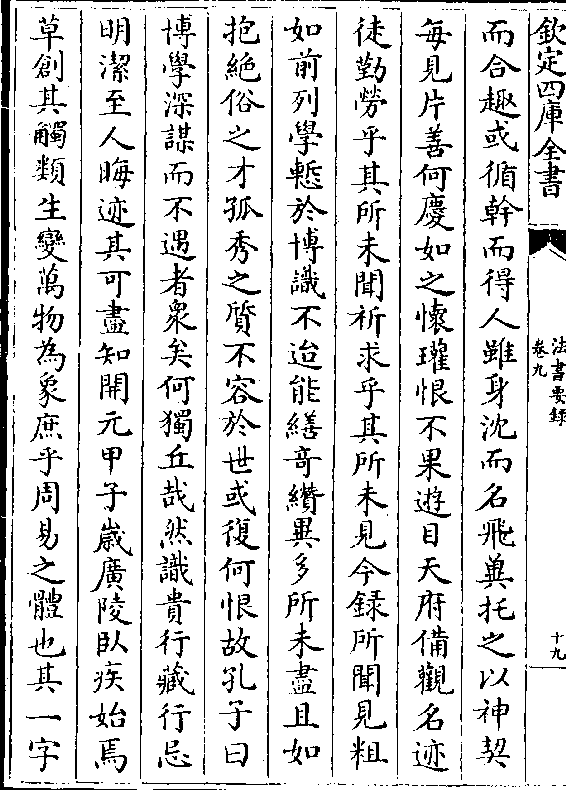 欽定四庫全書
法書要録
卷九
十九
而合趣或循幹而得人雖身沈而名飛冀托之以神契
每見片善何慶如之懷瓘恨不果遊目天府備觀名迹
徒勤勞乎其所未聞祈求乎其所未見今録所聞見粗
如前列學慙於博識不迨能繕奇纘異多所未盡且如
抱絶俗之才孤秀之質不容於世或復何恨故孔子曰
博學深謀而不遇者衆矣何獨丘哉然識貴行藏行忌
明潔至人晦迹其可盡知開元甲子歲廣陵臥疾始焉
草創其觸類生變萬物為象庶乎周易之體也其一字